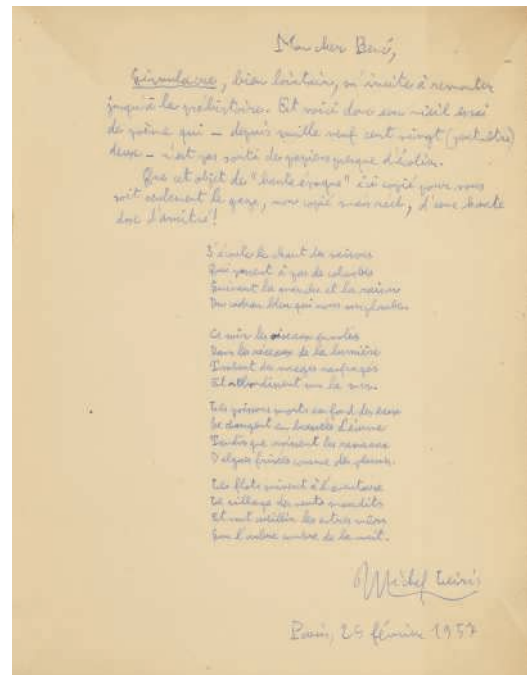 Mon cher René,
Simulacre, bien lointain, m'incite à remonter
jusqu'à la préhistoire. Et voici donc un vieil essai
de poème qui — depuis mille neuf cent vingt (peut-être)
deux — n'est pas sorti des papiers presque d'écolier.
Que cet objet de "haute époque" ici copié pour vous
soit seulement le gage, non copié mais réel, d'une haute
dose d'amitié!
J'écoute le chant des saisons
Qui passent à pas de colombes
Suivant la marche et la raison
Du cadran bleu qui nous surplombe
Ce soir les oiseaux
Dans les réseaux de la lumière
des nuages naufragés
Et sur la mer.
Les poissons morts au fond des eaux
Se changent en d'écume
Tandis que les rameaux
D'algues frisées comme des plumes.
Les flots suivent à l'aventure
Le sillage des vents maudits
Et vont cueillir les astres mûrs
Sur l'arbre sombre de la nuit.
Michel Leiris
Paris, 25 février 1957